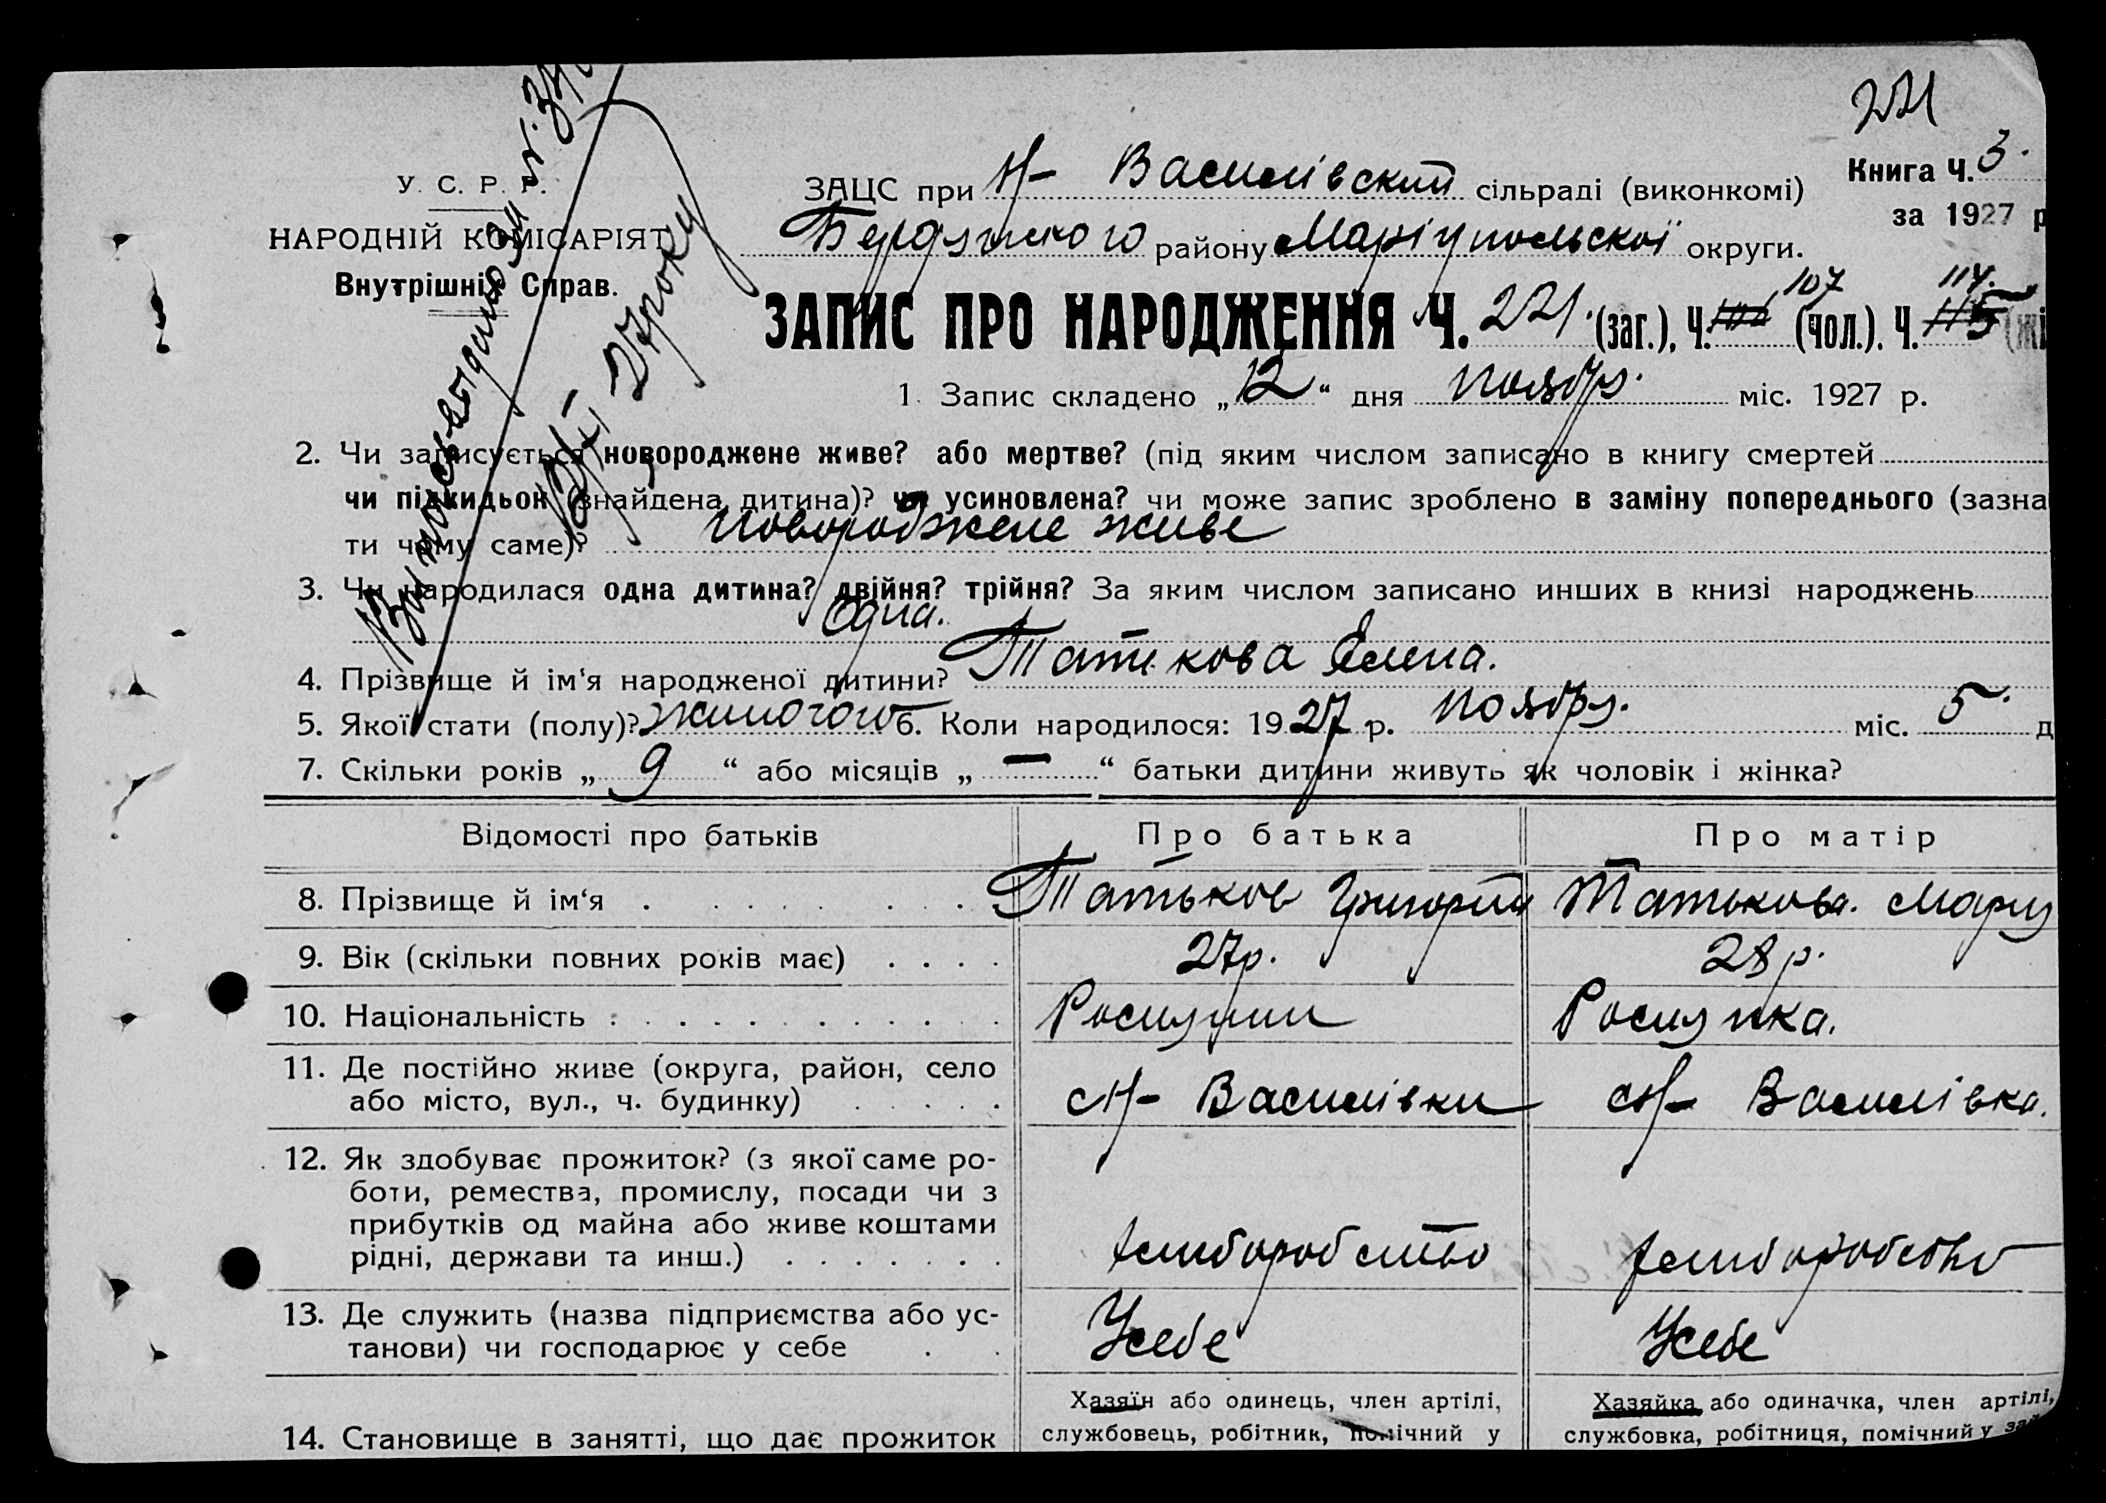 221
У. С. Р. Р.
НАРОДНІЙ КОМІСАРІЯТ
Внутрішніх Справ.
Книга Ч. 3.
за 1927 р
ЗАЦС при Н- Василівский сільраді (виконкомі)
Бердянского району Маріупольскої округи.
ЗАПИС ПРО НАРОДЖЕННЯ Ч. 221. (заг.), Ч. 107 (чол.). Ч. 114. (жі
1. Запис складено „12“ дня ноябр. міс. 1927 р.
2. Чи записується новороджене живе? або мертве? (під яким числом записано в книгу смертей
чи підкидьок (знайдена дитина)? чи усиновлена? чи може запис зроблено в заміну попереднього (зазна
ти чому саме)? новороджене живе
3. Чи народилася одна дитина? двійня? трійня? За яким числом записано инших в книзі народжень
Одна.
4. Прізвище й ім‘я народженої дитини? Татькова Елена.
5. Якої стати (полу)? жиночого 6. Коли народилося: 1927 р. ноябр. міс. 5 д
7. Скільки років „ 9 “ або місяців „ — “ батьки дитини живуть як чоловік і жінка?
Відомості про батьків Про батька Про матір
8. Прізвище й ім‘я Татьков Григорий Татькова. Мария
9. Вік (скільки повних років має) 27р. 28р.
10. Національність Росиянин Росиянка.
11. Де постійно живе (округа, район, село
або місто, вул., ч. будинку) Н- Василівки Н- Василівка.
12. Як здобуває прожиток? (з якої саме ро-
боти, ремества, промислу, посади чи з
прибутків од майна або живе коштами
рідні, держави та инш.) хлиборобство хлиборобство
13. Де служить (назва підприємства або ус-
танови) чи господарює у себе Усебе Усебе
14. Становище в занятті, що дає прожиток
Хазяїн або одинець, член артілі,
службовець, робітник, помічний у
Хазяйка або одиначка, член артілі,
службовка, робітниця, помічний у